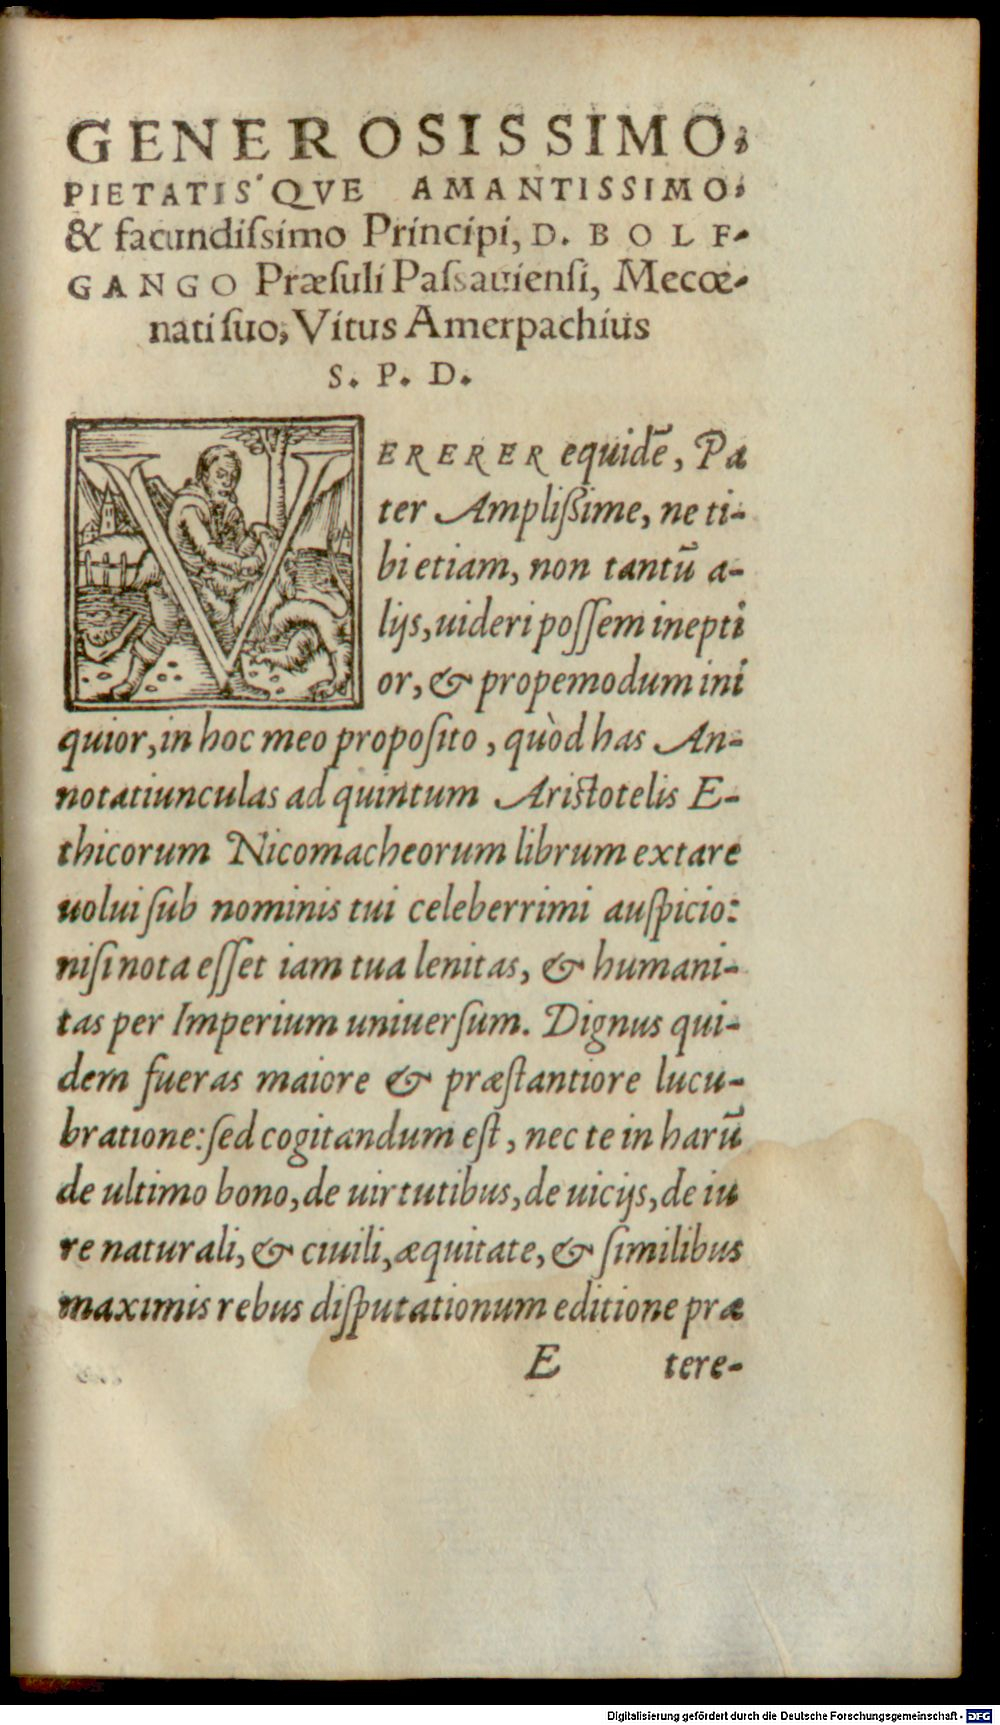 GENEROSISSIMO,
PIETATIS'QVE AMANTISSIMO,
& facundiſsimo Principi, D. BOLF-
GANGO Præſuli Paſsauienſi, Mecœ-
nati ſuo, Vitus Amerpachius
S. P. D.
VERERER equidē, Pa
ter Amplißime, ne ti-
bi etiam, non tantū a-
lijs, uideri poſſem inepti
or, & propemodum ini
quior, in hoc meo propoſito, quòd has An-
notatiunculas ad quintum Ariſtotelis E-
thicorum Nicomacheorum librum extare
uolui ſub nominis tui celeberrimi auſpicio:
niſi nota eſſet iam tua lenitas, & humani-
tas per Imperium uniuerſum. Dignus qui-
dem fueras maiore & præſtantiore lucu-
bratione: ſed cogitandum eſt, nec te in harū
de ultimo bono, de uirtutibus, de uicijs, de iu
re naturali, & ciuili, æquitate, & ſimilibus
maximis rebus diſputationum editione præ
E tere-
Digitalisierung gefördert durch die Deutsche Forschungsgemeinschaft - DFG